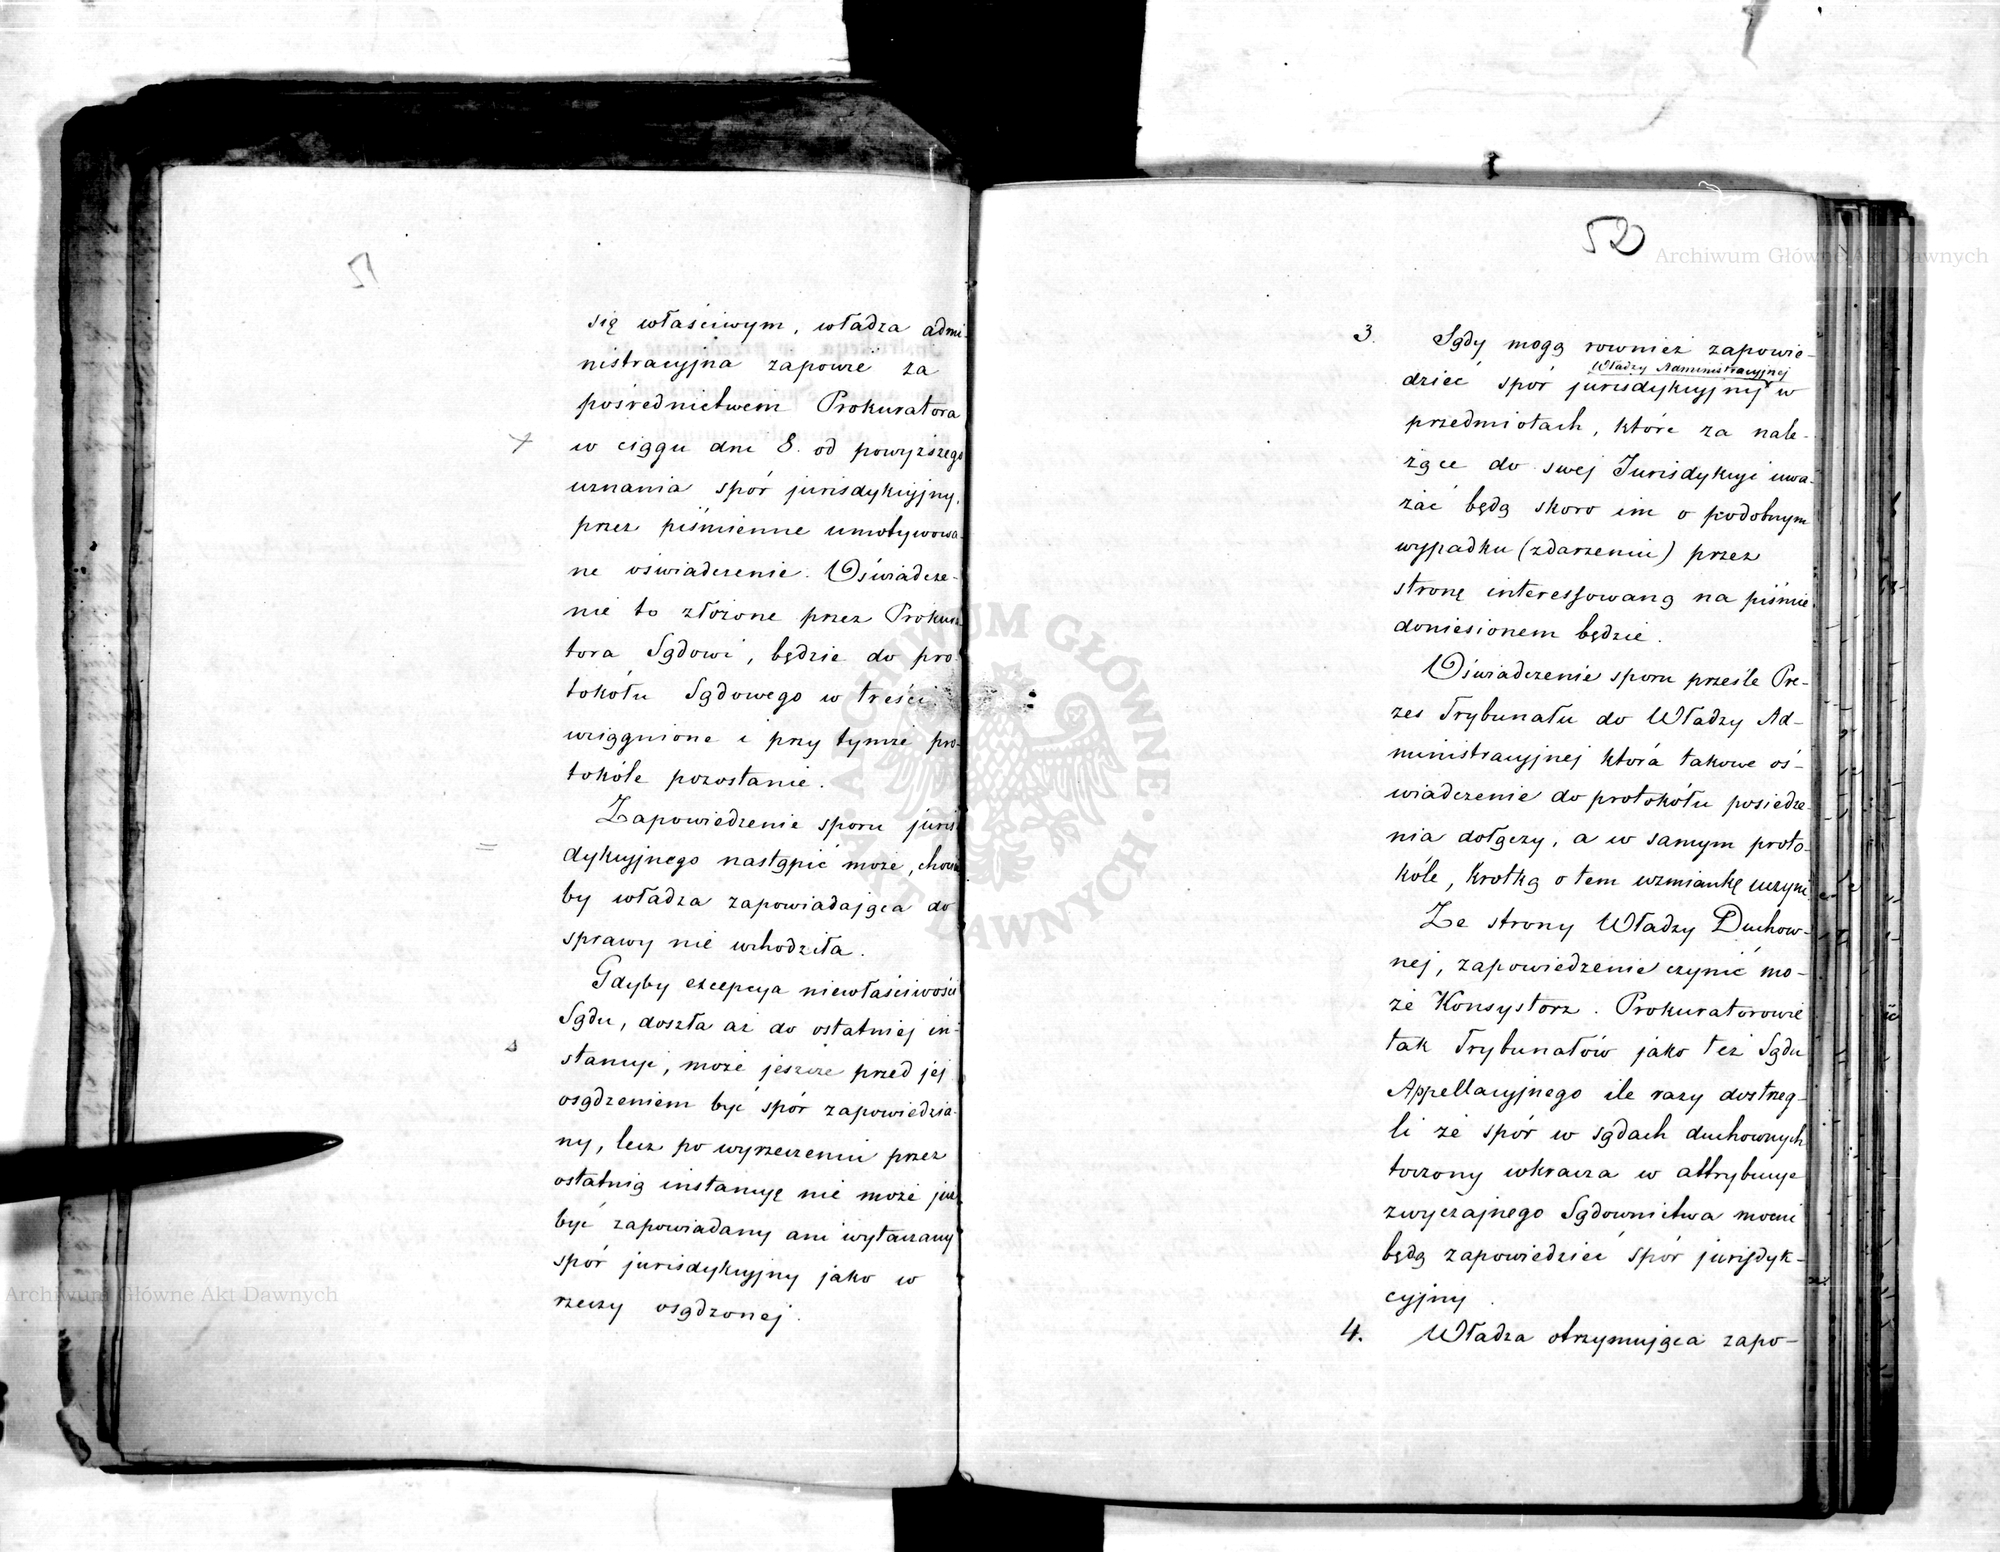 51
się właściwym, władza admi-
nistracyjna zapowie za
pośrednictwem Prokuratora
w ciągu dni 8. od powyższego
uznania spór jurisdykcyjny,
przez piśmienne umotywowa-
ne oświadczenie. Oświadcze-
nie to złożone przez Prokura-
tora Sądowi, będzie do pro-
tokółu Sądowego w treści
wciągnione i przy tymże pro-
tokóle pozostanie.
Zapowiedzenie sporu juris-
dykcyjnego nastąpić może, choć
by władza zapowiadająca do
sprawy nie wchodziła.
Gdyby excepcya niewłaściwości
Sądu, doszła aż do ostatniej in-
stancyi, może jeszcze przed jej
osądzeniem być spór zapowiedzia-
ny, lecz po wyrzeczeniu przez
ostatnią instancyę nie może już
być zapowiadany ani wytaczany
spór jurisdykcyjny jako w
rzeczy osądzonej.
52
3. Sądy mogą rownież zapowie-
Władzy Administracyjnej
dzieć spór jurisdykcyjny w
przedmiotach, które za nale-
żące do swej Jurisdykcyi uwa-
żać będą skoro im o podobnym
wypadku (zdarzeniu) przez
stronę interessowaną na piśmie
doniesionem będzie.
Oświadczenie sporu prześle Pre-
zes Trybunału do Władzy Ad-
ministracyjnej która takowe oś-
wiadczenie do protokółu posiedze-
nia dołączy, a w samym proto-
kóle, krotką o tem wzmiankę uczyni.
Ze strony Władzy Duchow-
nej, zapowiedzenie czynić mo-
że Konsystorz. Prokuratorowie
tak Trybunałów jako też Sądu
Appellacyjnego ile razy dostrzeg-
li że spór w sądach duchownych
toczony wkracza w attrybucye
zwyczajnego Sądownictwa mocni
będą zapowiedzieć spór jurisdyk-
cyjny.
4. Władza otrzymująca zapo-
Archiwum Główne Akt Dawnych
Archiwum Główne Akt Dawnych
ARCHIWUM GŁÓWNE AKT DAWNYCH